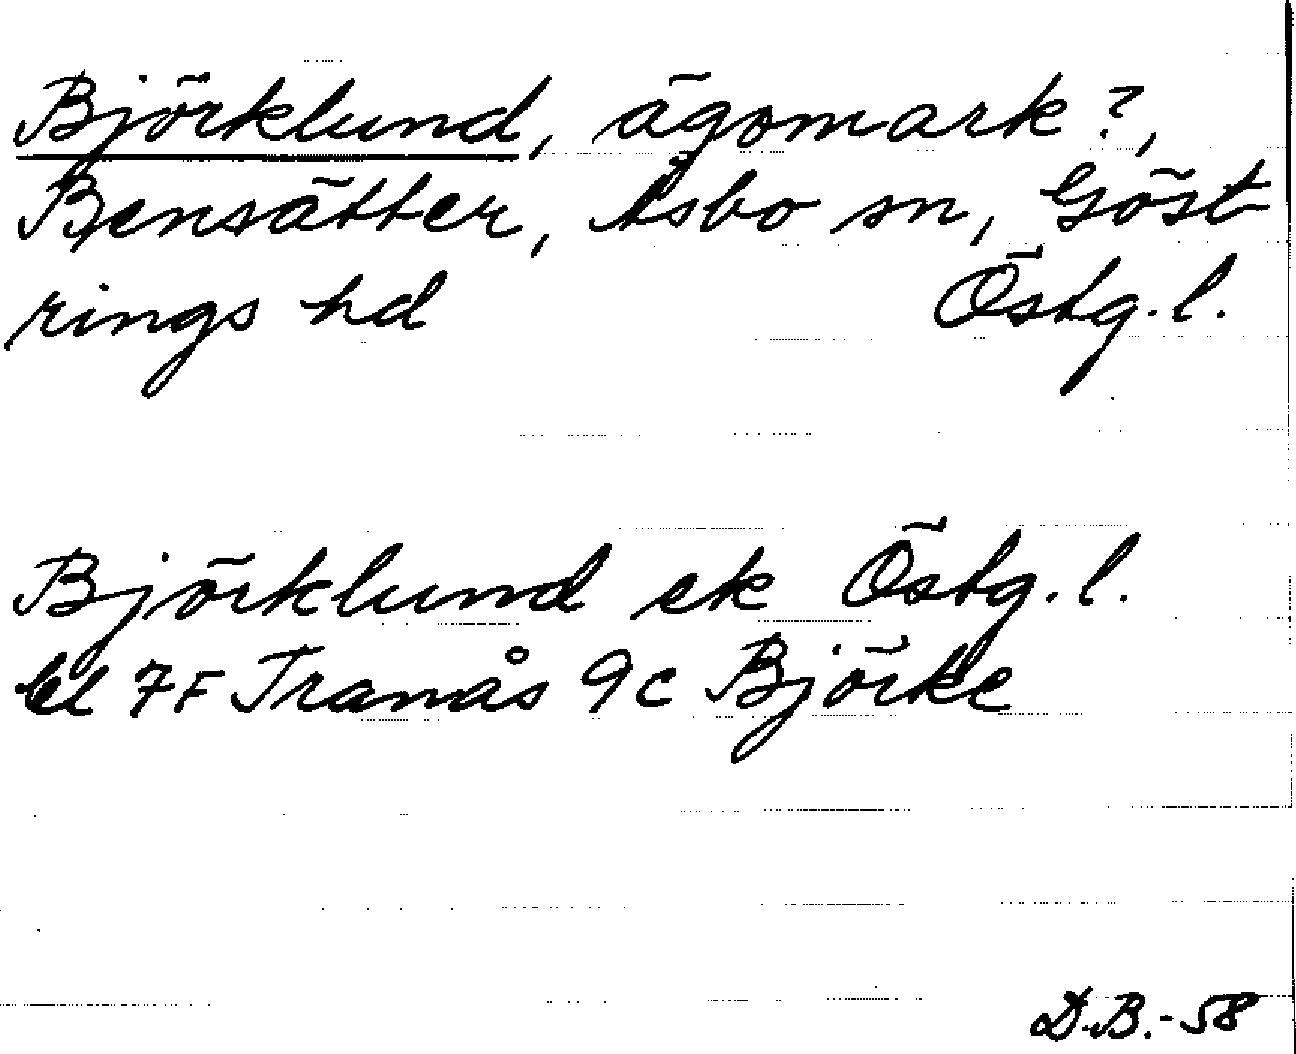 Björklund, ägomark?,
Bensätter, Åsbo sn, Göst
rings hd Östg.l.
Björklund ek Östg.l.
bl 7F Tranås 9c Björke
D.B.-58